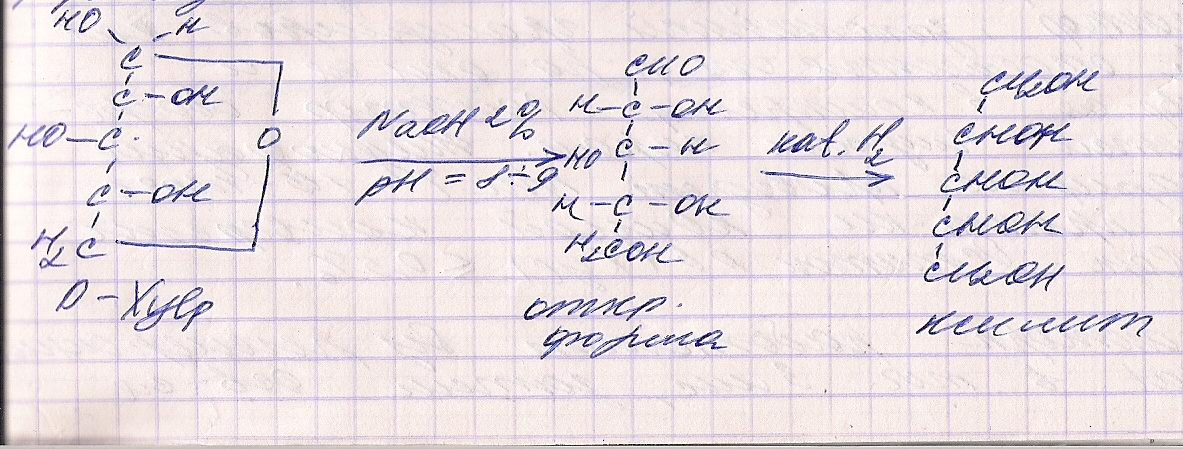 HO H
C
C-OH
HO-C
O
C-OH
H2C
D-Xylp
NaOH 2%
pH = 8÷9
CHO
H-C-OH
HO C-H
H-C-OH
H2COH
откр.
форма
кат. H2
CH2OH
CHOH
CHOH
CHOH
CH2OH
ксилит